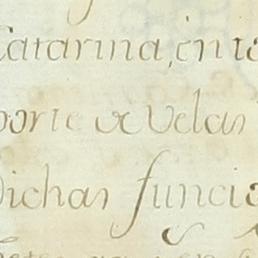 Catarina, en ta
porte de Velas
Dichas funcio